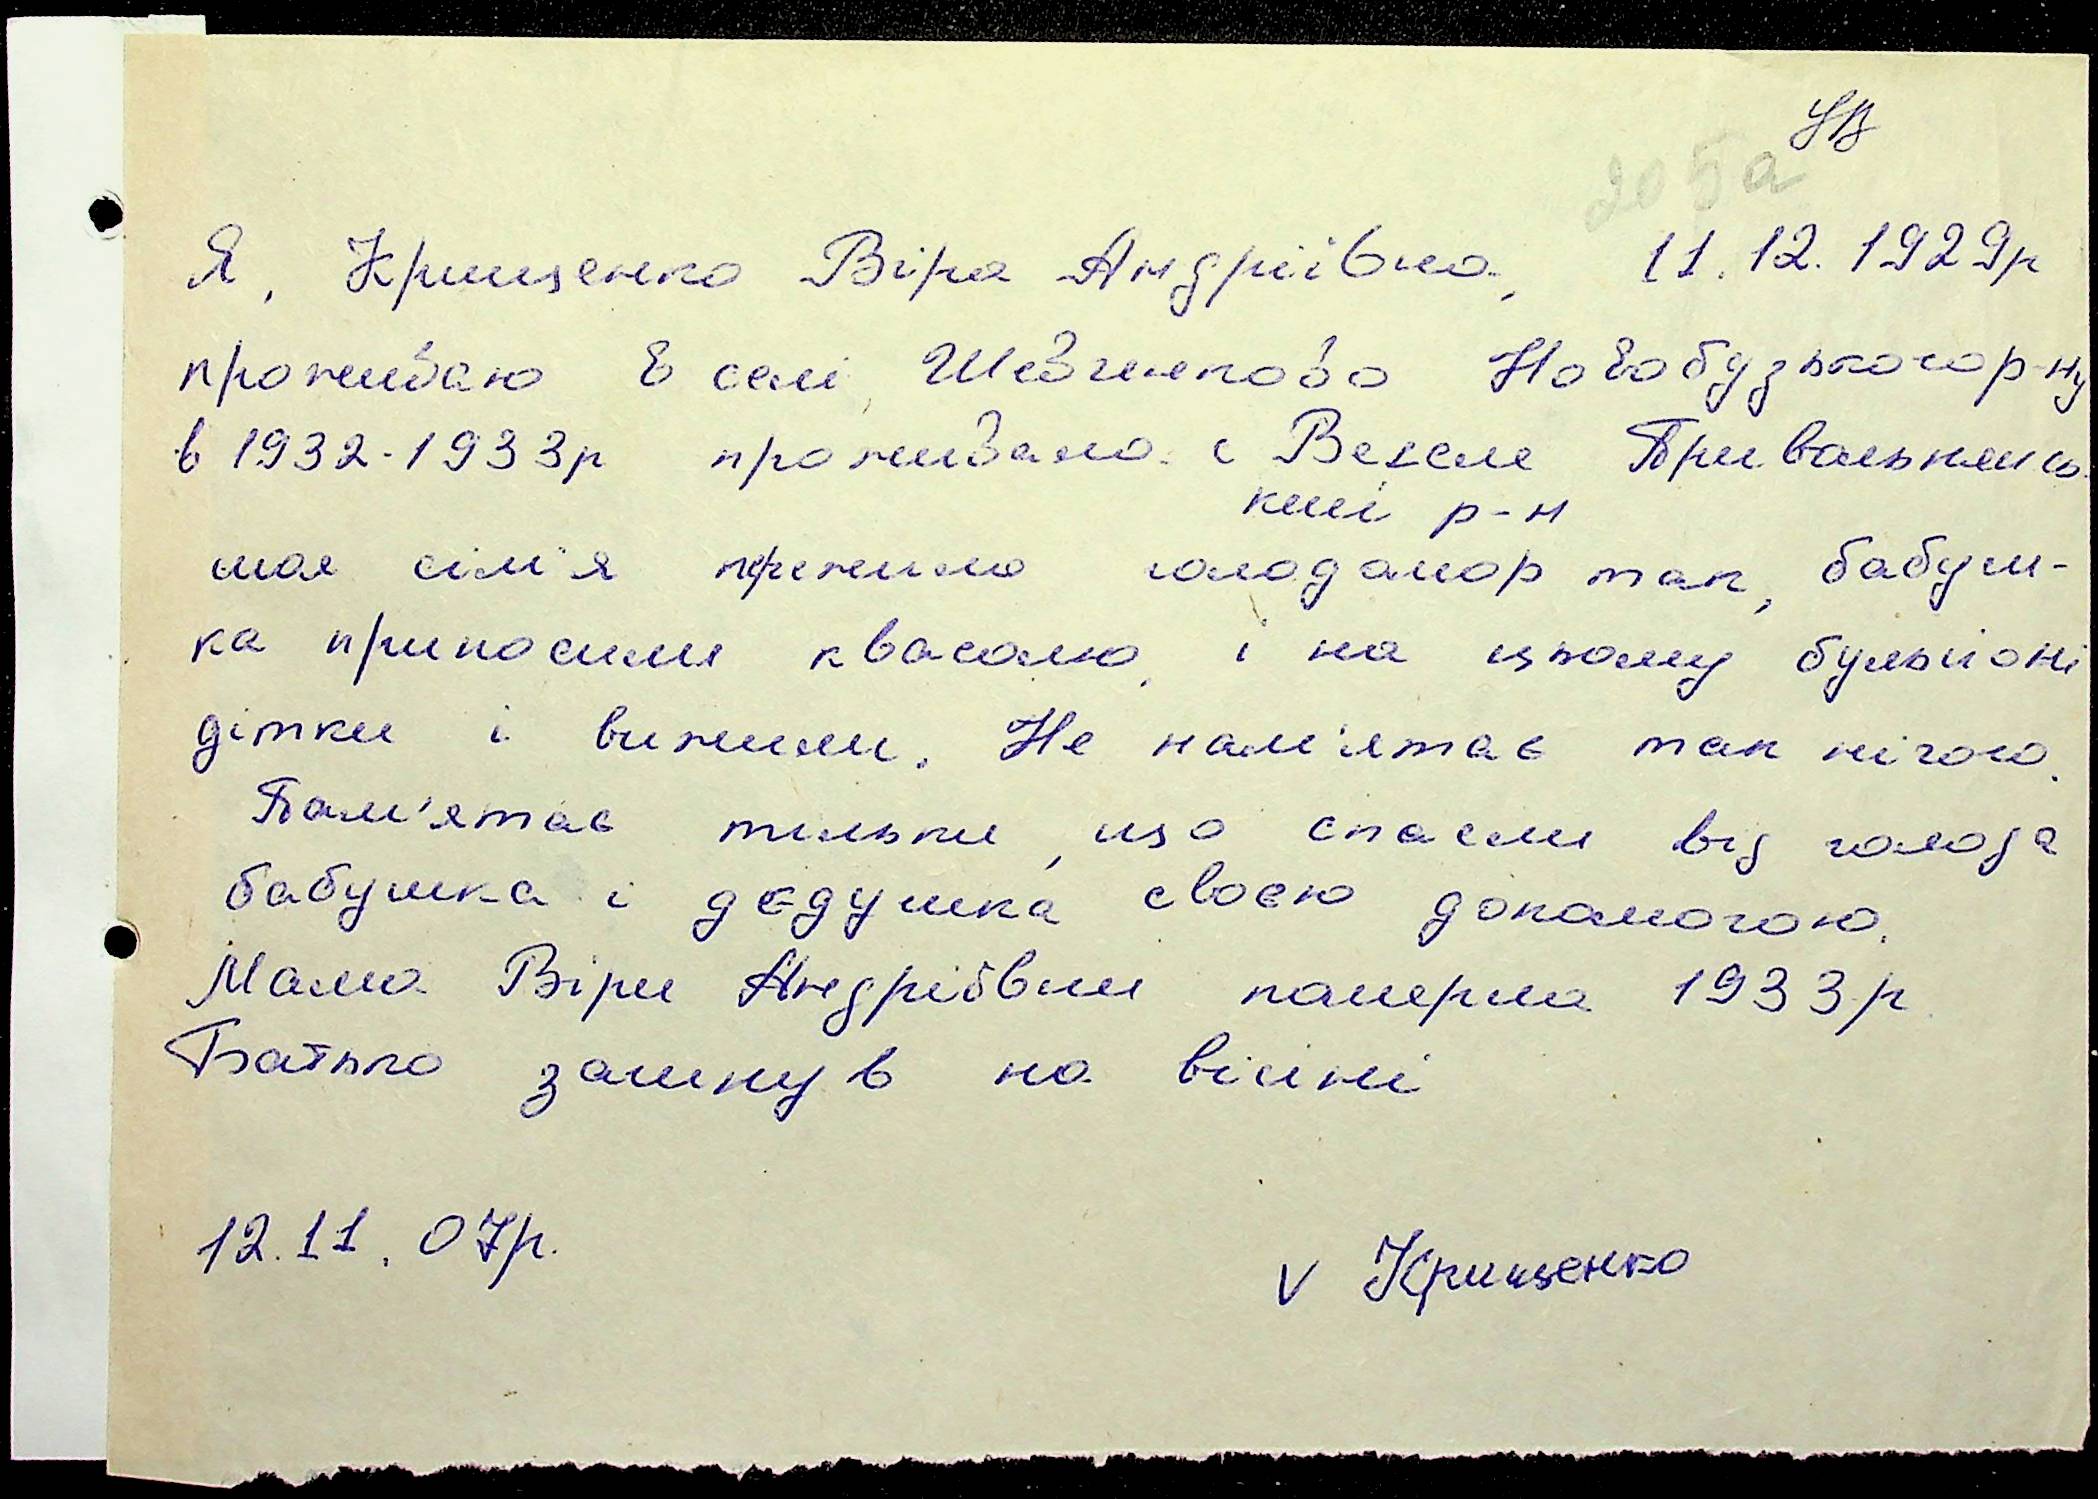 205а
Я, Крищенко Віра Андріївна, 11.12.1929р
проживаю в селі Шевченково Новобузького р-ну
в 1932-1933р проживала с Веселе Привальнянсь
кий р-н
моя сім'я пережила голодомор так, бабуш-
ка приносили квасолю, і на цьому бульйоні
дітки і вижили. Не пам'ятає так нічого.
Пам'ятає тільки, що спасли від голода
бабушка і дєдушка своєю допомогою.
Мама Віри Андріївни померла 1933р.
Батько загинув на війні
12.11.07р.
v Крищенко